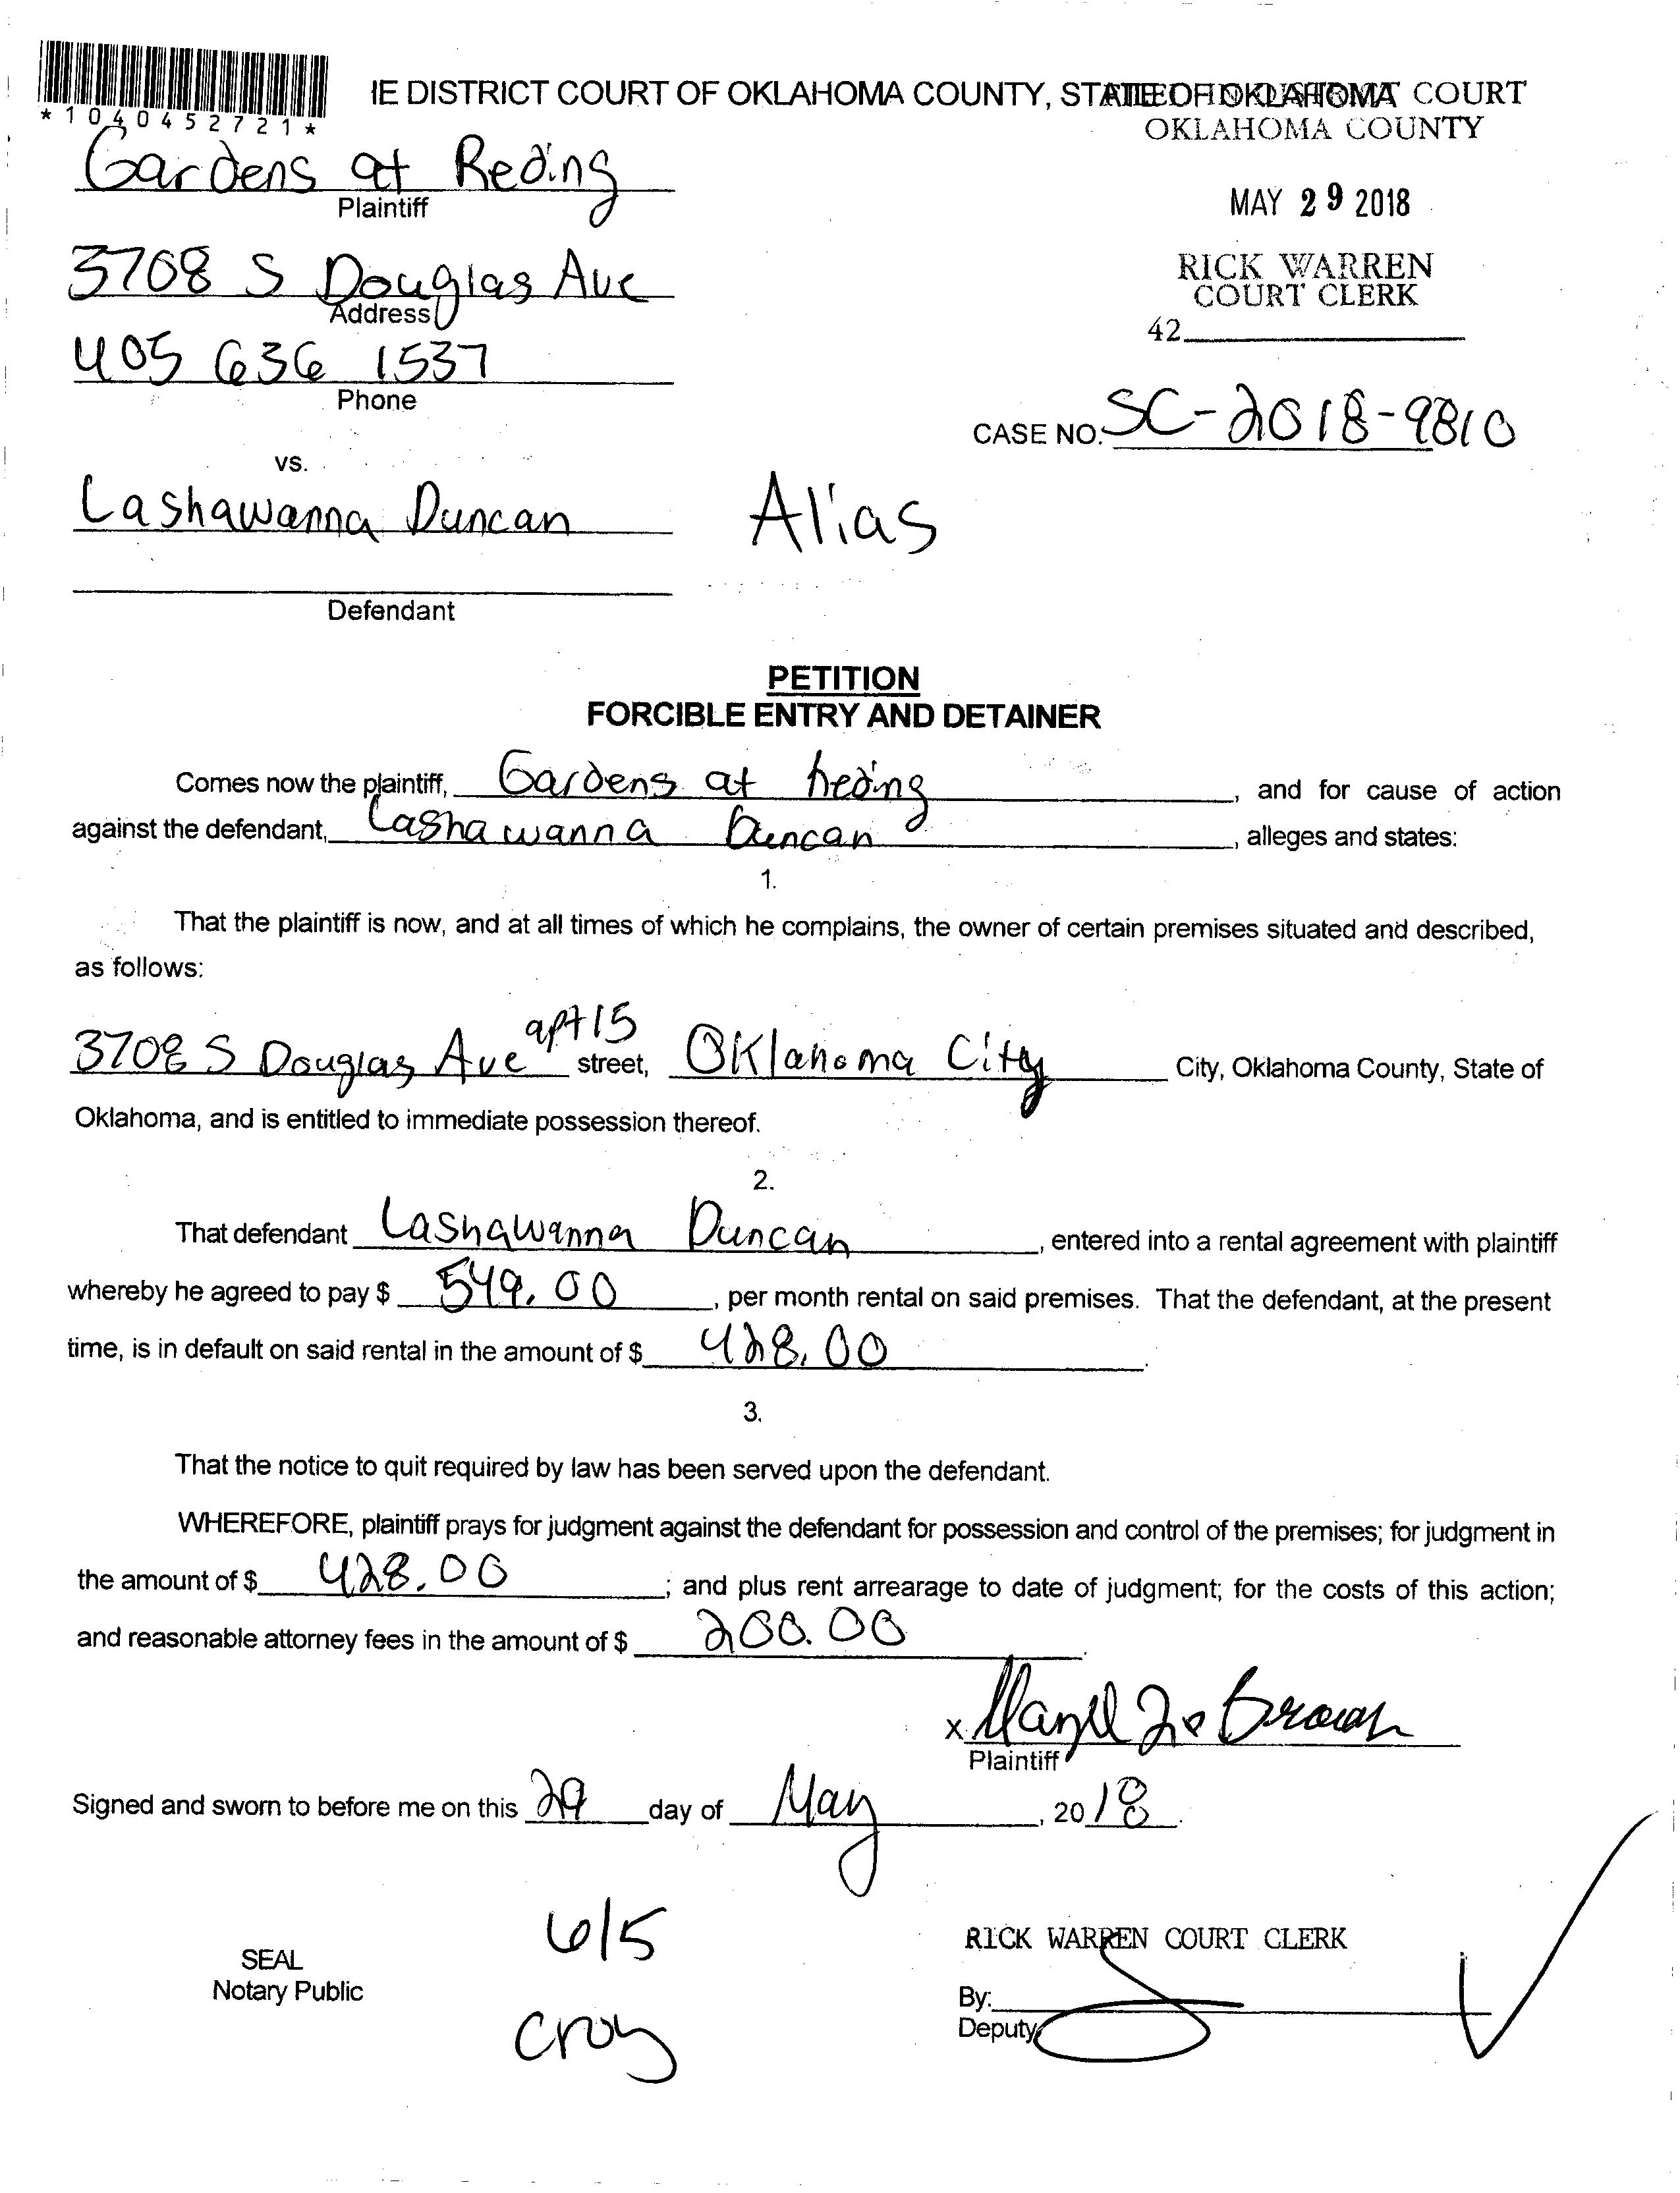 *1040452721*
IE DISTRICT COURT OF OKLAHOMA COUNTY, STATE OF OKLAHOMA COURT
OKLAHOMA COUNTY
Gardens at Reding
Plaintiff
MAY 29 2018
3708 S Douglas Ave
Address
RICK WARREN
COURT CLERK
42
405 636 1537
Phone
CASE NO. SC-2018-9810
vs.
Lashawanna Duncan
Alias
Defendant
PETITION
FORCIBLE ENTRY AND DETAINER
Comes now the plaintiff, Gardens at Reding, and for cause of action
against the defendant, Lashawanna Duncan, alleges and states:
1.
That the plaintiff is now, and at all times of which he complains, the owner of certain premises situated and described,
as follows:
3708 S Douglas Ave apt 15 street, Oklahoma City City, Oklahoma County, State of
Oklahoma, and is entitled to immediate possession thereof.
2.
That defendant Lashawanna Duncan, entered into a rental agreement with plaintiff
whereby he agreed to pay $ 549.00, per month rental on said premises. That the defendant, at the present
time, is in default on said rental in the amount of $ 428.00.
3.
That the notice to quit required by law has been served upon the defendant.
WHEREFORE, plaintiff prays for judgment against the defendant for possession and control of the premises; for judgment in
the amount of $ 428.00; and plus rent arrearage to date of judgment; for the costs of this action;
and reasonable attorney fees in the amount of $ 200.00.
x Brown
Plaintiff
Signed and sworn to before me on this 29 day of May, 2018.
6/5
SEAL
Notary Public
Croy
RICK WARREN COURT CLERK
By:
Deputy